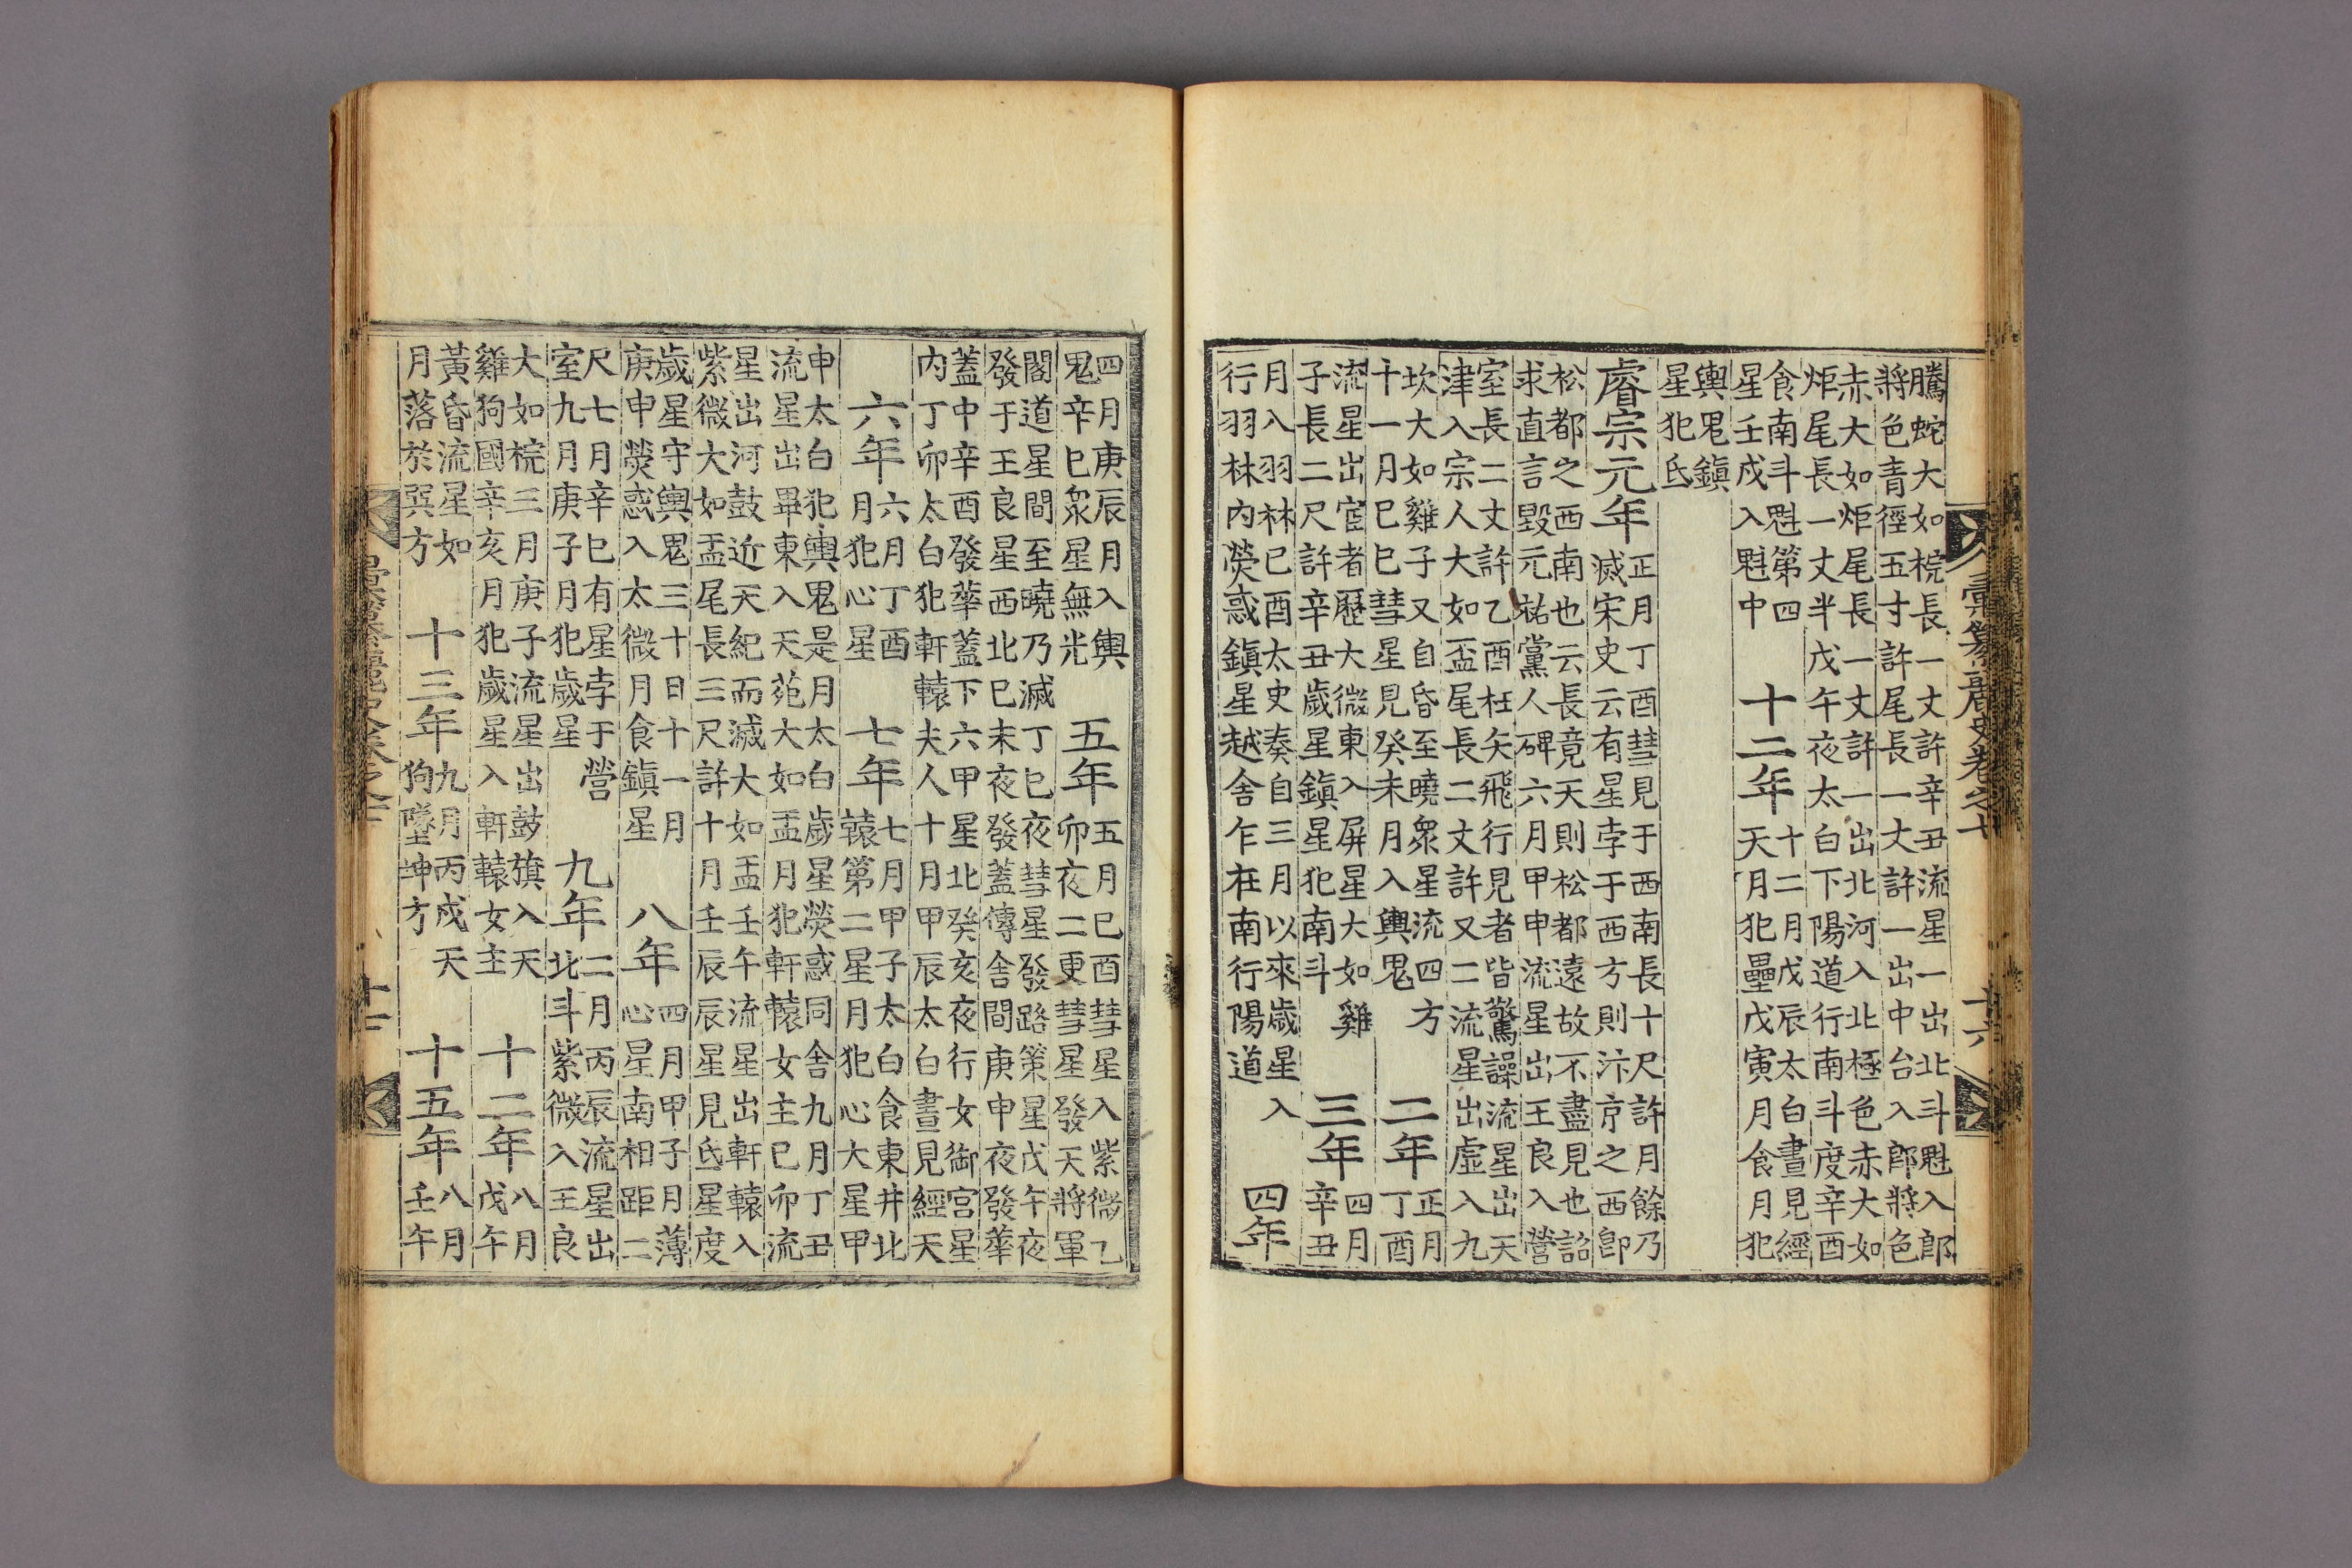 彙纂麗史卷之十
十六
騰蛇大如梡長一丈許辛丑流星一出北斗魁入郎
將色青徑五寸許尾長一丈許一出中台入郎將色
赤大如炬尾長一丈許一出北河入北極色赤大如
炬尾長一丈半戊午夜太白下陽道行南斗度辛酉
食南斗魁第四
星壬戌入魁中
十二年
十二月戊辰太白晝見經
天月犯壘戊寅月食月犯
輿鬼鎭
星犯氐
睿宗元年
正月丁酉彗見于西南長十尺許月餘乃
滅宋史云有星孛于西方則汴京之西卽
松都之西南也云長竟天則松都遠故不盡見也詔
求直言毀元祐黨人碑六月甲申流星出王良入營
室長二丈許乙酉枉矢飛行見者皆驚譟流星出天
津入宗人大如盃尾長二丈許又二流星出虛入九
坎大如雞子又自昏至曉衆星流四方
十一月巳巳彗星見癸未月入輿鬼
二年
正月
丁酉
流星出宦者歷大微東入屏星大如雞
子長二尺許辛丑歲星鎭星犯南斗
三年
四月
辛丑
月入羽林已酉太史奏自三月以來歲星入
行羽林內熒惑鎭星越舍乍在南行陽道
四年
四月庚辰月入輿
鬼辛巳衆星無光
五年
五月已酉彗星入紫微乙
卯夜二更彗星發天將軍
閣道星間至曉乃滅丁巳夜彗星發路策星戊午夜
發于王良星西北巳未夜發蓋傳舍間庚申夜發華
蓋中辛酉發華蓋下六甲星北癸亥夜行女御宮星
內丁卯太白犯軒轅夫人十月甲辰太白晝見經天
六年
六月丁酉
月犯心星
七年
七月甲子太白食東井北
轅第二星月犯心大星甲
申太白犯輿鬼是月太白歲星熒惑同舍九月丁丑
流星出畢東入天苑大如盂月犯軒轅女主巳卯流
星出河鼓近天紀而滅大如盂壬午流星出軒轅入
紫微大如盂尾長三尺許十月壬辰辰星見氐星度
歲星守輿鬼三十日十一月
庚申熒惑入太微月食鎭星
八年
四月甲子月薄
心星南相距二
尺七月辛巳有星孛于營
室九月庚子月犯歲星
九年
二月丙辰流星出
北斗紫微入王良
大如梡三月庚子流星出鼓旗入天
雞狗國辛亥月犯歲星入軒轅女主
十二年
八月
戊午
黃昏流星如
月落於巽方
十三年
九月丙戌天
狗墮坤方
十五年
八月
壬午